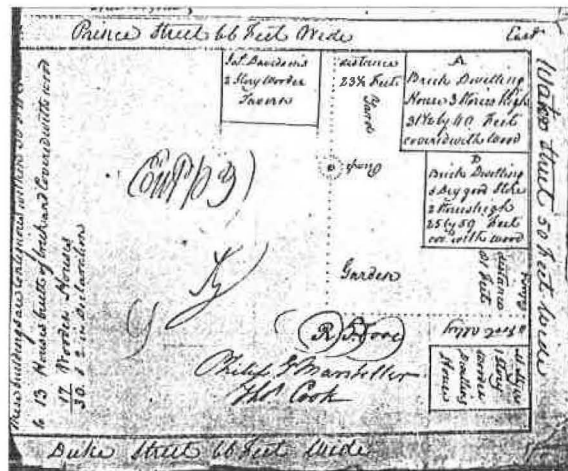 Prince Street 66 Feet Wide
East
Water Street 50 Feet Wide
Jos. Davidson's
2 Story Wooden
Tavern
distance
23½ Feet
Yard
A
Brick Dwelling
House 3 Stories high
31½ by 40 Feet
covered with Wood
B
Brick Dwelling
& Dry good Store
2 Stories high
25 by 50 Feet
cov. with wood
Garden
distance
81 Feet
Alley
2 Story
Wooden
Dwelling
House
These buildings are contiguous within 30 Feet
13 Houses built of brick and covered with wood
17 Wooden Houses
30. & 2 in declaration
Philip G Marsteller
Thos Cook
Duke Street 66 Feet Wide